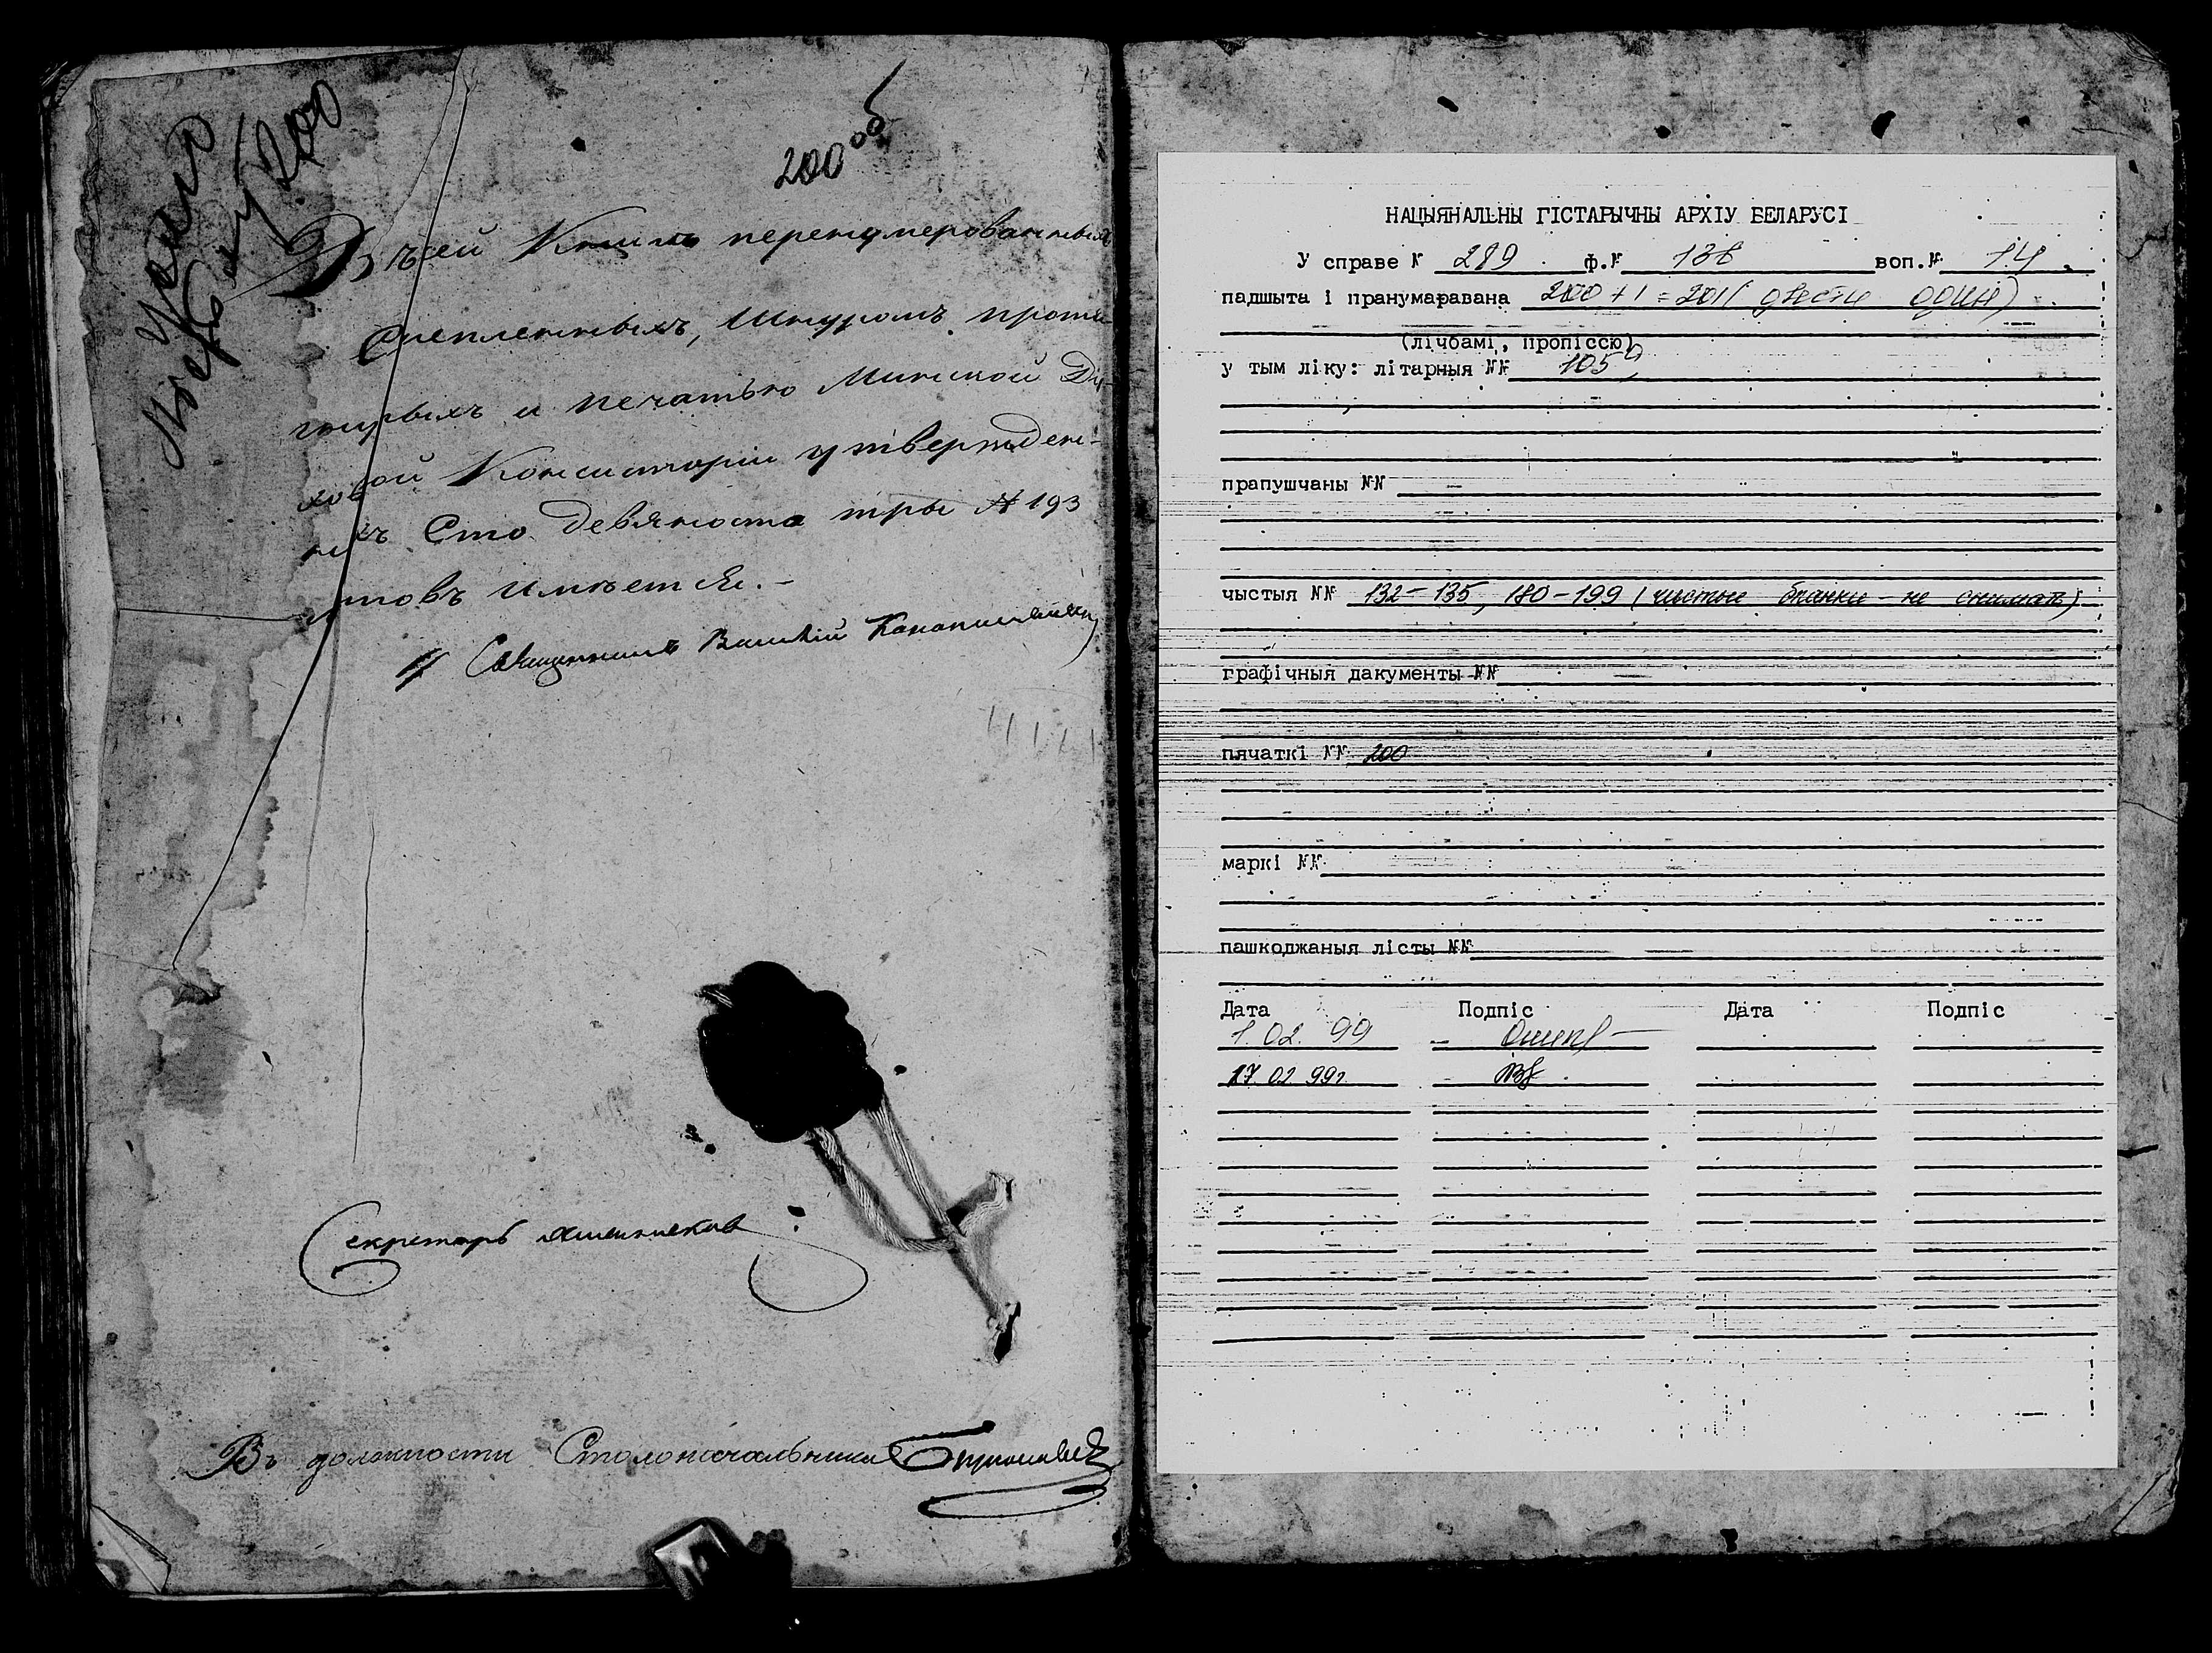 200 об
Въ сей Книгѣ перенумерованныхъ
Скрепленныхъ, Шнуромъ прошну
тыхъ и печатью Минской Ду-
ховой Консисторіи утвержден-
ныхъ Сто девяноста три № 193
листовъ имѣется.-
Священникъ Василій
Секретарь
Въ должности Столоначальника
НАЦЫЯНАЛЬНЫ ГІСТАРЫЧНЫ АРХІЎ БЕЛАРУСІ
У справе № 289 ф.№ 136 воп.№ 14
падшыта і пранумаравана 200 + 1 = 201 (двести один)
(лічбамі, пропіссю)
у тым ліку: літарныя №№ 105а
прапушчаны №№ -
чыстыя №№ 132-135, 180-199 (чистые бланки - не снимать)
графічныя дакументы №№
пячаткі №№ 200
маркі №№
пашкоджаныя лісты №№
Дата Подпіс Дата Подпіс
1.02.99
17.02.99г.